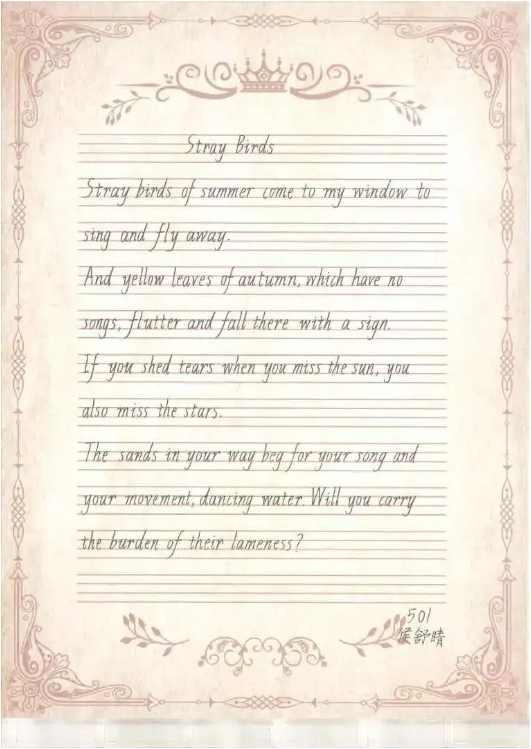 Stray Birds
Stray birds of summer come to my window to
sing and fly away.
And yellow leaves of autumn, which have no
songs, flutter and fall there with a sign.
If you shed tears when you miss the sun, you
also miss the stars.
The sands in your way beg for your song and
your movement, dancing water. Will you carry
the burden of their lameness?
501
侯舒晴